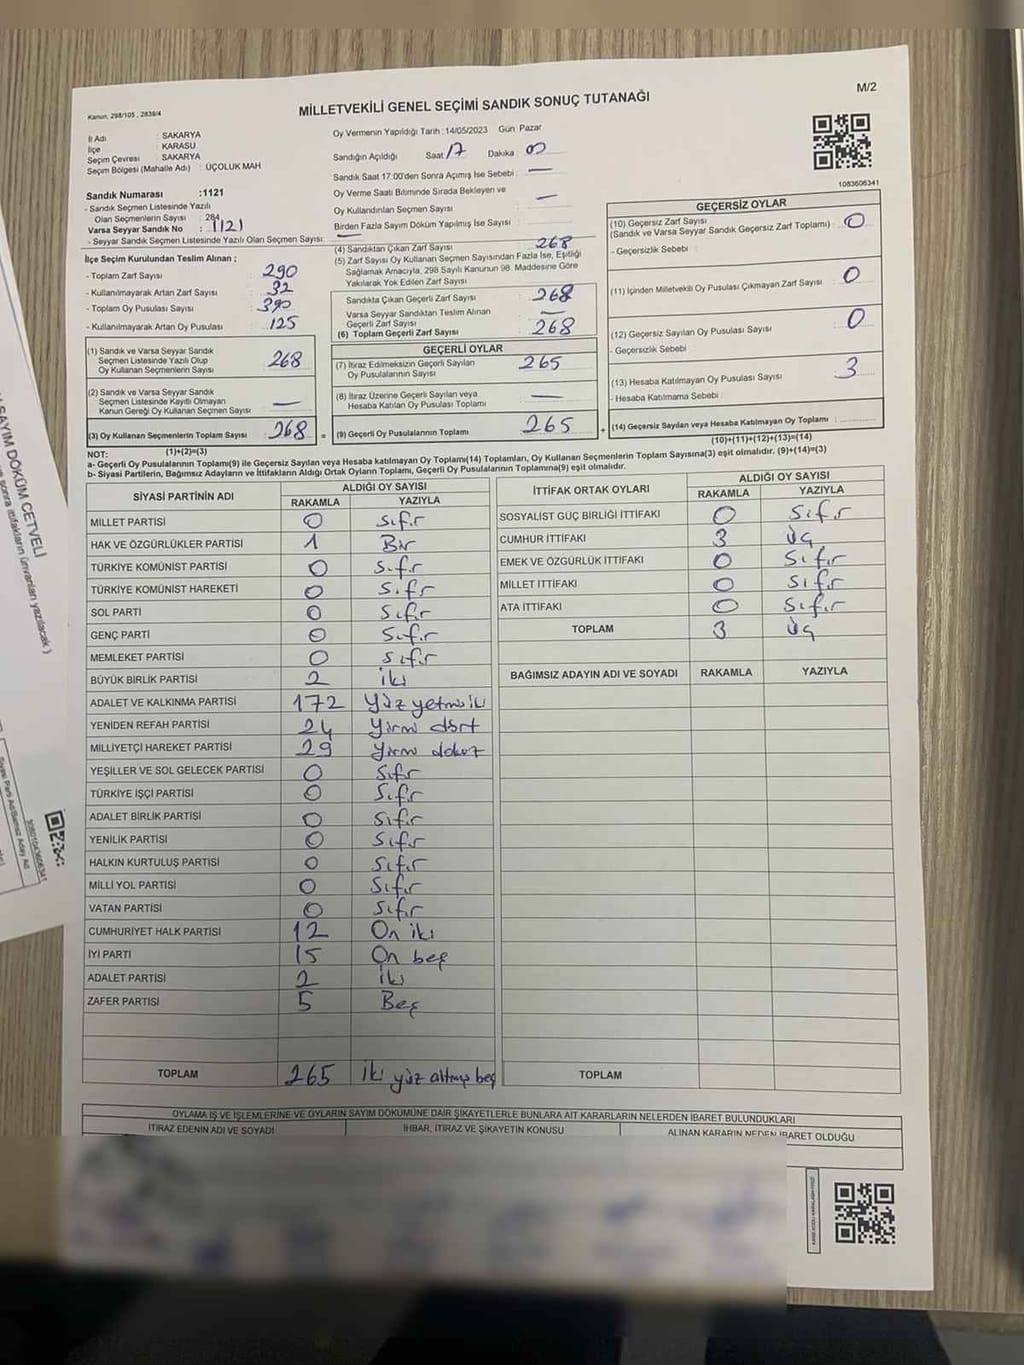 M/2
Kanun; 298/105 , 2839/4
MİLLETVEKİLİ GENEL SEÇİMİ SANDIK SONUÇ TUTANAĞI
İl Adı : SAKARYA
İlçe : KARASU
Seçim Çevresi : SAKARYA
Seçim Bölgesi (Mahalle Adı) : ÜÇOLUK MAH
Oy Vermenin Yapıldığı Tarih : 14/05/2023 Gün : Pazar
Sandığın Açıldığı Saat 17 Dakika 00
Sandık Saat 17:00'den Sonra Açımış İse Sebebi : —
Oy Verme Saati Bitiminde Sırada Bekleyen ve
Oy Kullandırılan Seçmen Sayısı —
Birden Fazla Sayım Döküm Yapılmış İse Sayısı :
1083606341
Sandık Numarası :1121
- Sandık Seçmen Listesinde Yazılı
Olan Seçmenlerin Sayısı : 284
Varsa Seyyar Sandık No : 1121
- Seyyar Sandık Seçmen Listesinde Yazılı Olan Seçmen Sayısı: —
İlçe Seçim Kurulundan Teslim Alınan ;
- Toplam Zarf Sayısı : 290
- Kullanılmayarak Artan Zarf Sayısı : 32
- Toplam Oy Pusulası Sayısı : 390
- Kullanılmayarak Artan Oy Pusulası : 125
(1) Sandık ve Varsa Seyyar Sandık
Seçmen Listesinde Yazılı Olup
Oy Kullanan Seçmenlerin Sayısı 268
(2) Sandık ve Varsa Seyyar Sandık
Seçmen Listesinde Kayıtlı Olmayan
Kanun Gereği Oy Kullanan Seçmen Sayısı —
(3) Oy Kullanan Seçmenlerin Toplam Sayısı 268 =
(1)+(2)=(3)
(4) Sandıktan Çıkan Zarf Sayısı 268
(5) Zarf Sayısı Oy Kullanan Seçmen Sayısından Fazla İse, Eşitliği
Sağlamak Amacıyla, 298 Sayılı Kanunun 98. Maddesine Göre
Yakılarak Yok Edilen Zarf Sayısı
Sandıkta Çıkan Geçerli Zarf Sayısı 268
Varsa Seyyar Sandıktan Teslim Alınan
Geçerli Zarf Sayısı —
(6) Toplam Geçerli Zarf Sayısı 268
GEÇERLİ OYLAR
(7) İtiraz Edilmeksizin Geçerli Sayılan
Oy Pusulalarının Sayısı 265
(8) İtiraz Üzerine Geçerli Sayılan veya
Hesaba Katılan Oy Pusulası Toplamı —
(9) Geçerli Oy Pusulalarının Toplamı 265 +
GEÇERSİZ OYLAR
(10) Geçersiz Zarf Sayısı
(Sandık ve Varsa Seyyar Sandık Geçersiz Zarf Toplamı) : 0
- Geçersizlik Sebebi :
(11) İçinden Milletvekili Oy Pusulası Çıkmayan Zarf Sayısı : 0
(12) Geçersiz Sayılan Oy Pusulası Sayısı : 0
- Geçersizlik Sebebi
(13) Hesaba Katılmayan Oy Pusulası Sayısı : 3
- Hesaba Katılmama Sebebi :
(14) Geçersiz Sayılan veya Hesaba Katılmayan Oy Toplamı :
(10)+(11)+(12)+(13)=(14)
NOT:
a- Geçerli Oy Pusulalarının Toplamı(9) ile Geçersiz Sayılan veya Hesaba katılmayan Oy Toplamı(14) Toplamları, Oy Kullanan Seçmenlerin Toplam Sayısına(3) eşit olmalıdır. (9)+(14)=(3)
b- Siyasi Partilerin, Bağımsız Adayların ve İttifakların Aldığı Ortak Oyların Toplamı, Geçerli Oy Pusulalarının Toplamına(9) eşit olmalıdır.
SİYASİ PARTİNİN ADI ALDIĞI OY SAYISI
RAKAMLA YAZIYLA
MİLLET PARTİSİ 0 Sıfır
HAK VE ÖZGÜRLÜKLER PARTİSİ 1 Bir
TÜRKİYE KOMÜNİST PARTİSİ 0 Sıfır
TÜRKİYE KOMÜNİST HAREKETİ 0 Sıfır
SOL PARTİ 0 Sıfır
GENÇ PARTİ 0 Sıfır
MEMLEKET PARTİSİ 0 Sıfır
BÜYÜK BİRLİK PARTİSİ 2 İki
ADALET VE KALKINMA PARTİSİ 172 Yüz yetmiş iki
YENİDEN REFAH PARTİSİ 24 Yirmi dört
MİLLİYETÇİ HAREKET PARTİSİ 29 Yirmi dokuz
YEŞİLLER VE SOL GELECEK PARTİSİ 0 Sıfır
TÜRKİYE İŞÇİ PARTİSİ 0 Sıfır
ADALET BİRLİK PARTİSİ 0 Sıfır
YENİLİK PARTİSİ 0 Sıfır
HALKIN KURTULUŞ PARTİSİ 0 Sıfır
MİLLİ YOL PARTİSİ 0 Sıfır
VATAN PARTİSİ 0 Sıfır
CUMHURİYET HALK PARTİSİ 12 On iki
İYİ PARTİ 15 On beş
ADALET PARTİSİ 2 İki
ZAFER PARTİSİ 5 Beş
TOPLAM 265 İki yüz altmış beş
İTTİFAK ORTAK OYLARI ALDIĞI OY SAYISI
RAKAMLA YAZIYLA
SOSYALİST GÜÇ BİRLİĞİ İTTİFAKI 0 Sıfır
CUMHUR İTTİFAKI 3 Üç
EMEK VE ÖZGÜRLÜK İTTİFAKI 0 Sıfır
MİLLET İTTİFAKI 0 Sıfır
ATA İTTİFAKI 0 Sıfır
TOPLAM 3 Üç
BAĞIMSIZ ADAYIN ADI VE SOYADI RAKAMLA YAZIYLA
TOPLAM
OYLAMA İŞ VE İŞLEMLERİNE VE OYLARIN SAYIM DÖKÜMÜNE DAİR ŞİKAYETLERLE BUNLARA AİT KARARLARIN NELERDEN İBARET BULUNDUKLARI
İTİRAZ EDENİN ADI VE SOYADI İHBAR, İTİRAZ VE ŞİKAYETİN KONUSU ALINAN KARARIN NEDEN İBARET OLDUĞU
SAYIM DÖKÜM CETVELİ
sonra ittifakların ünvanları yazılacak )